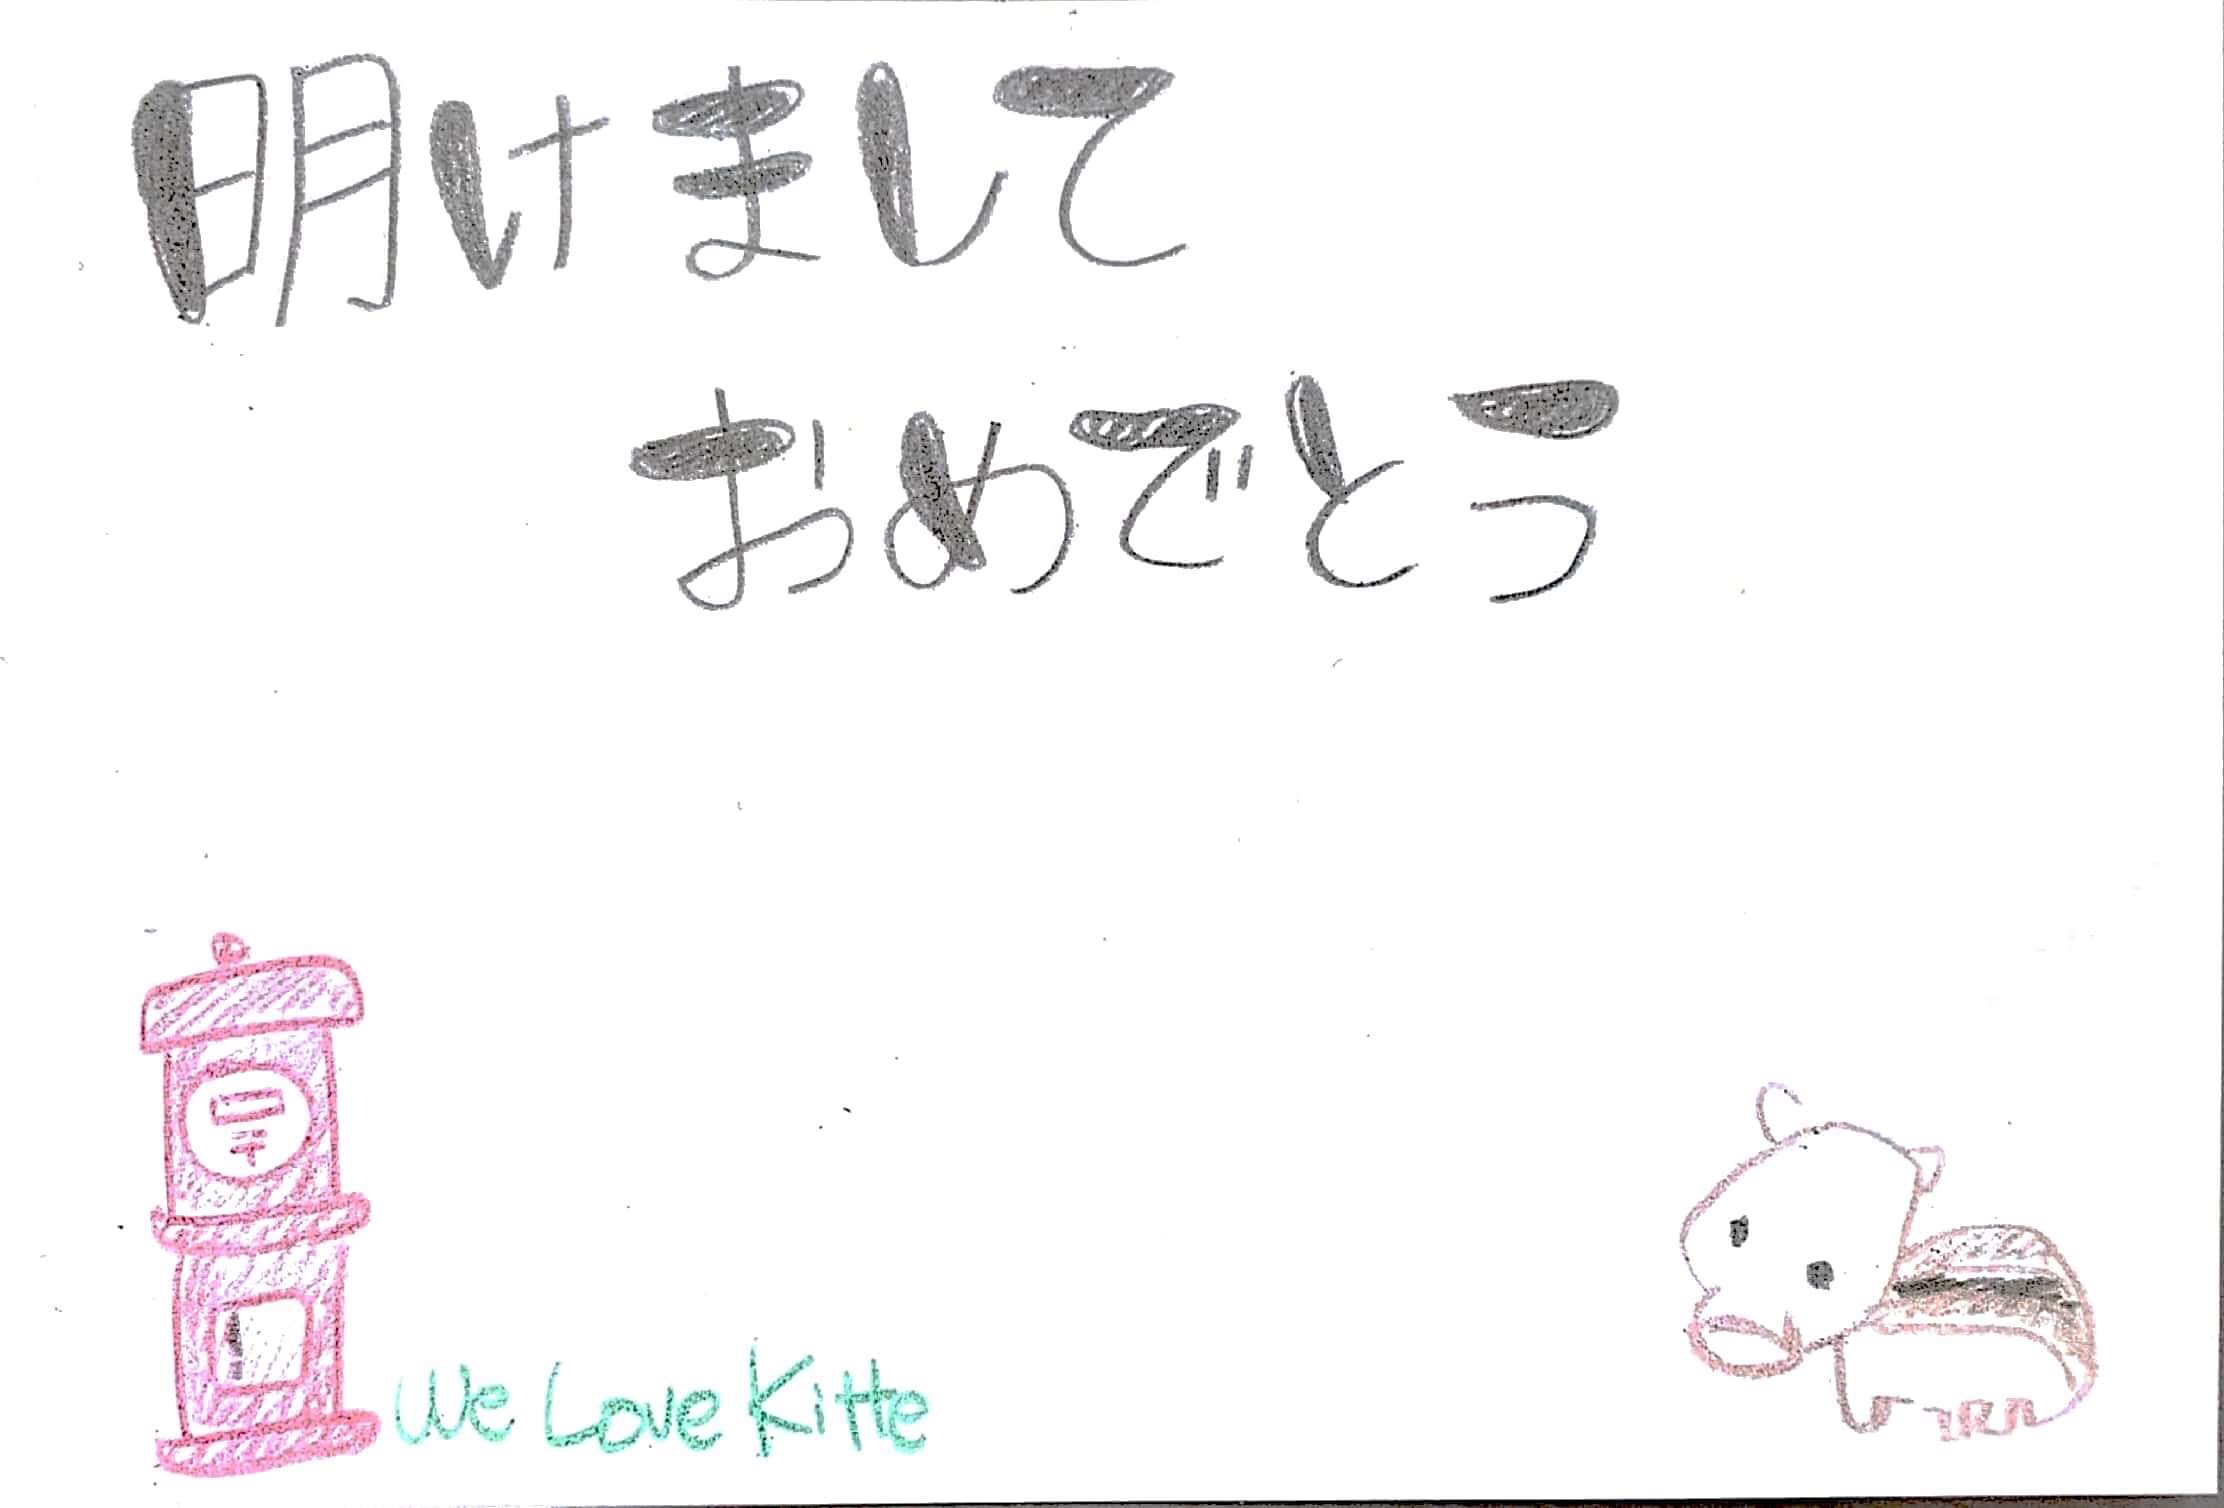 明けまして
おめでとう
〒
We Love Kitte